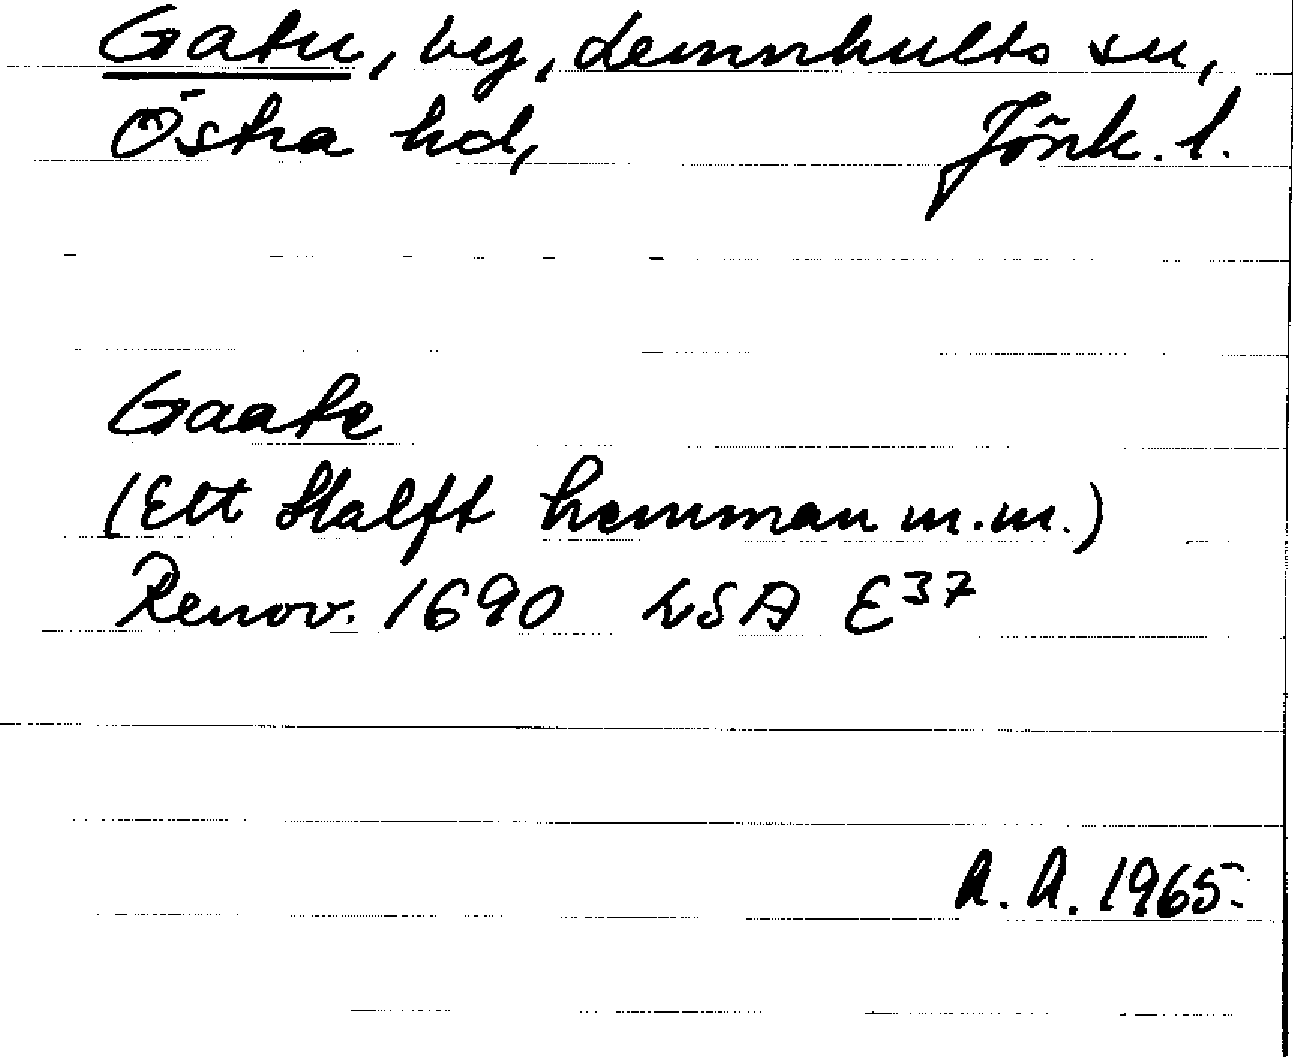 Gatu, by, Lemnhults sn,
Östra hd, Jönk. l.
Gaate
(Ett Halft hemman m.m.)
Renov. 1690 LSA E³⁷
A. A. 1965.